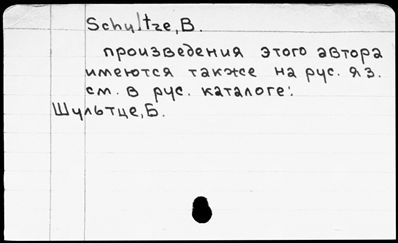 Schultze, B.
произведения этого автора
имеются также на рус. яз.
см. в рус. каталоге:
Шультце, Б.